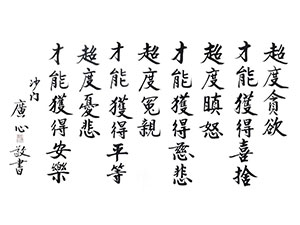 超度貪欲
才能獲得喜捨
超度瞋怒
才能獲得慈悲
超度冤親
才能獲得平等
超度憂悲
才能獲得安樂
沙門 廣心 敬書